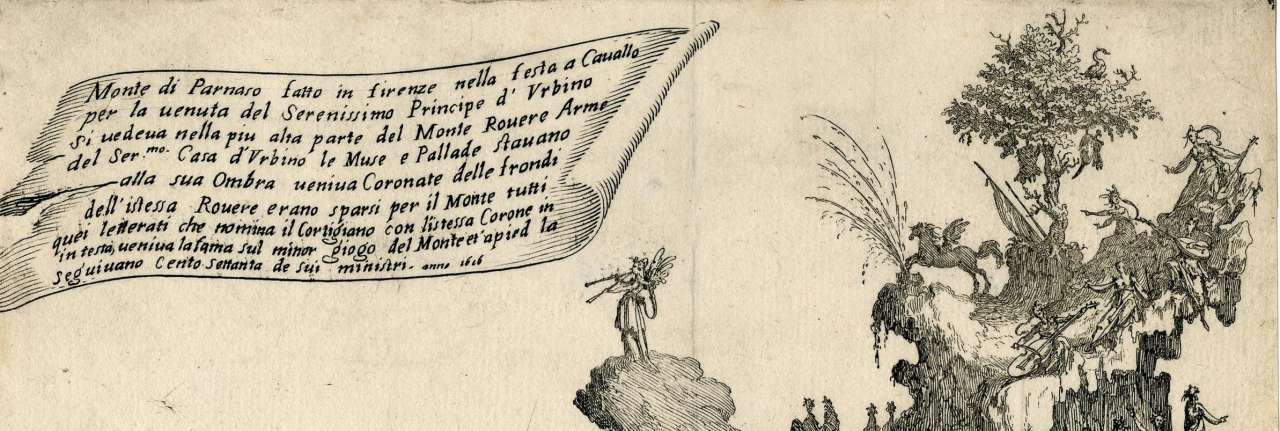 Monte di Parnaso fatto in firenze nella festa a Cauallo
per la uenuta del Serenissimo Principe d' Vrbino
Si uedeua nella piu alta parte del Monte Rouere Arme
del Ser.mo. Casa d'Vrbino le Muse e Pallade stauano
alla sua Ombra ueniua Coronate delle frondi
dell'istessa Rouere erano sparsi per il Monte tutti
quei letterati che nomina il Cortigiano con l'istessa Corone in
in testa, ueniua la fama sul minor giogo del Monte et a pied la
seguiuano Cento settanta de sui ministri. anno 1616